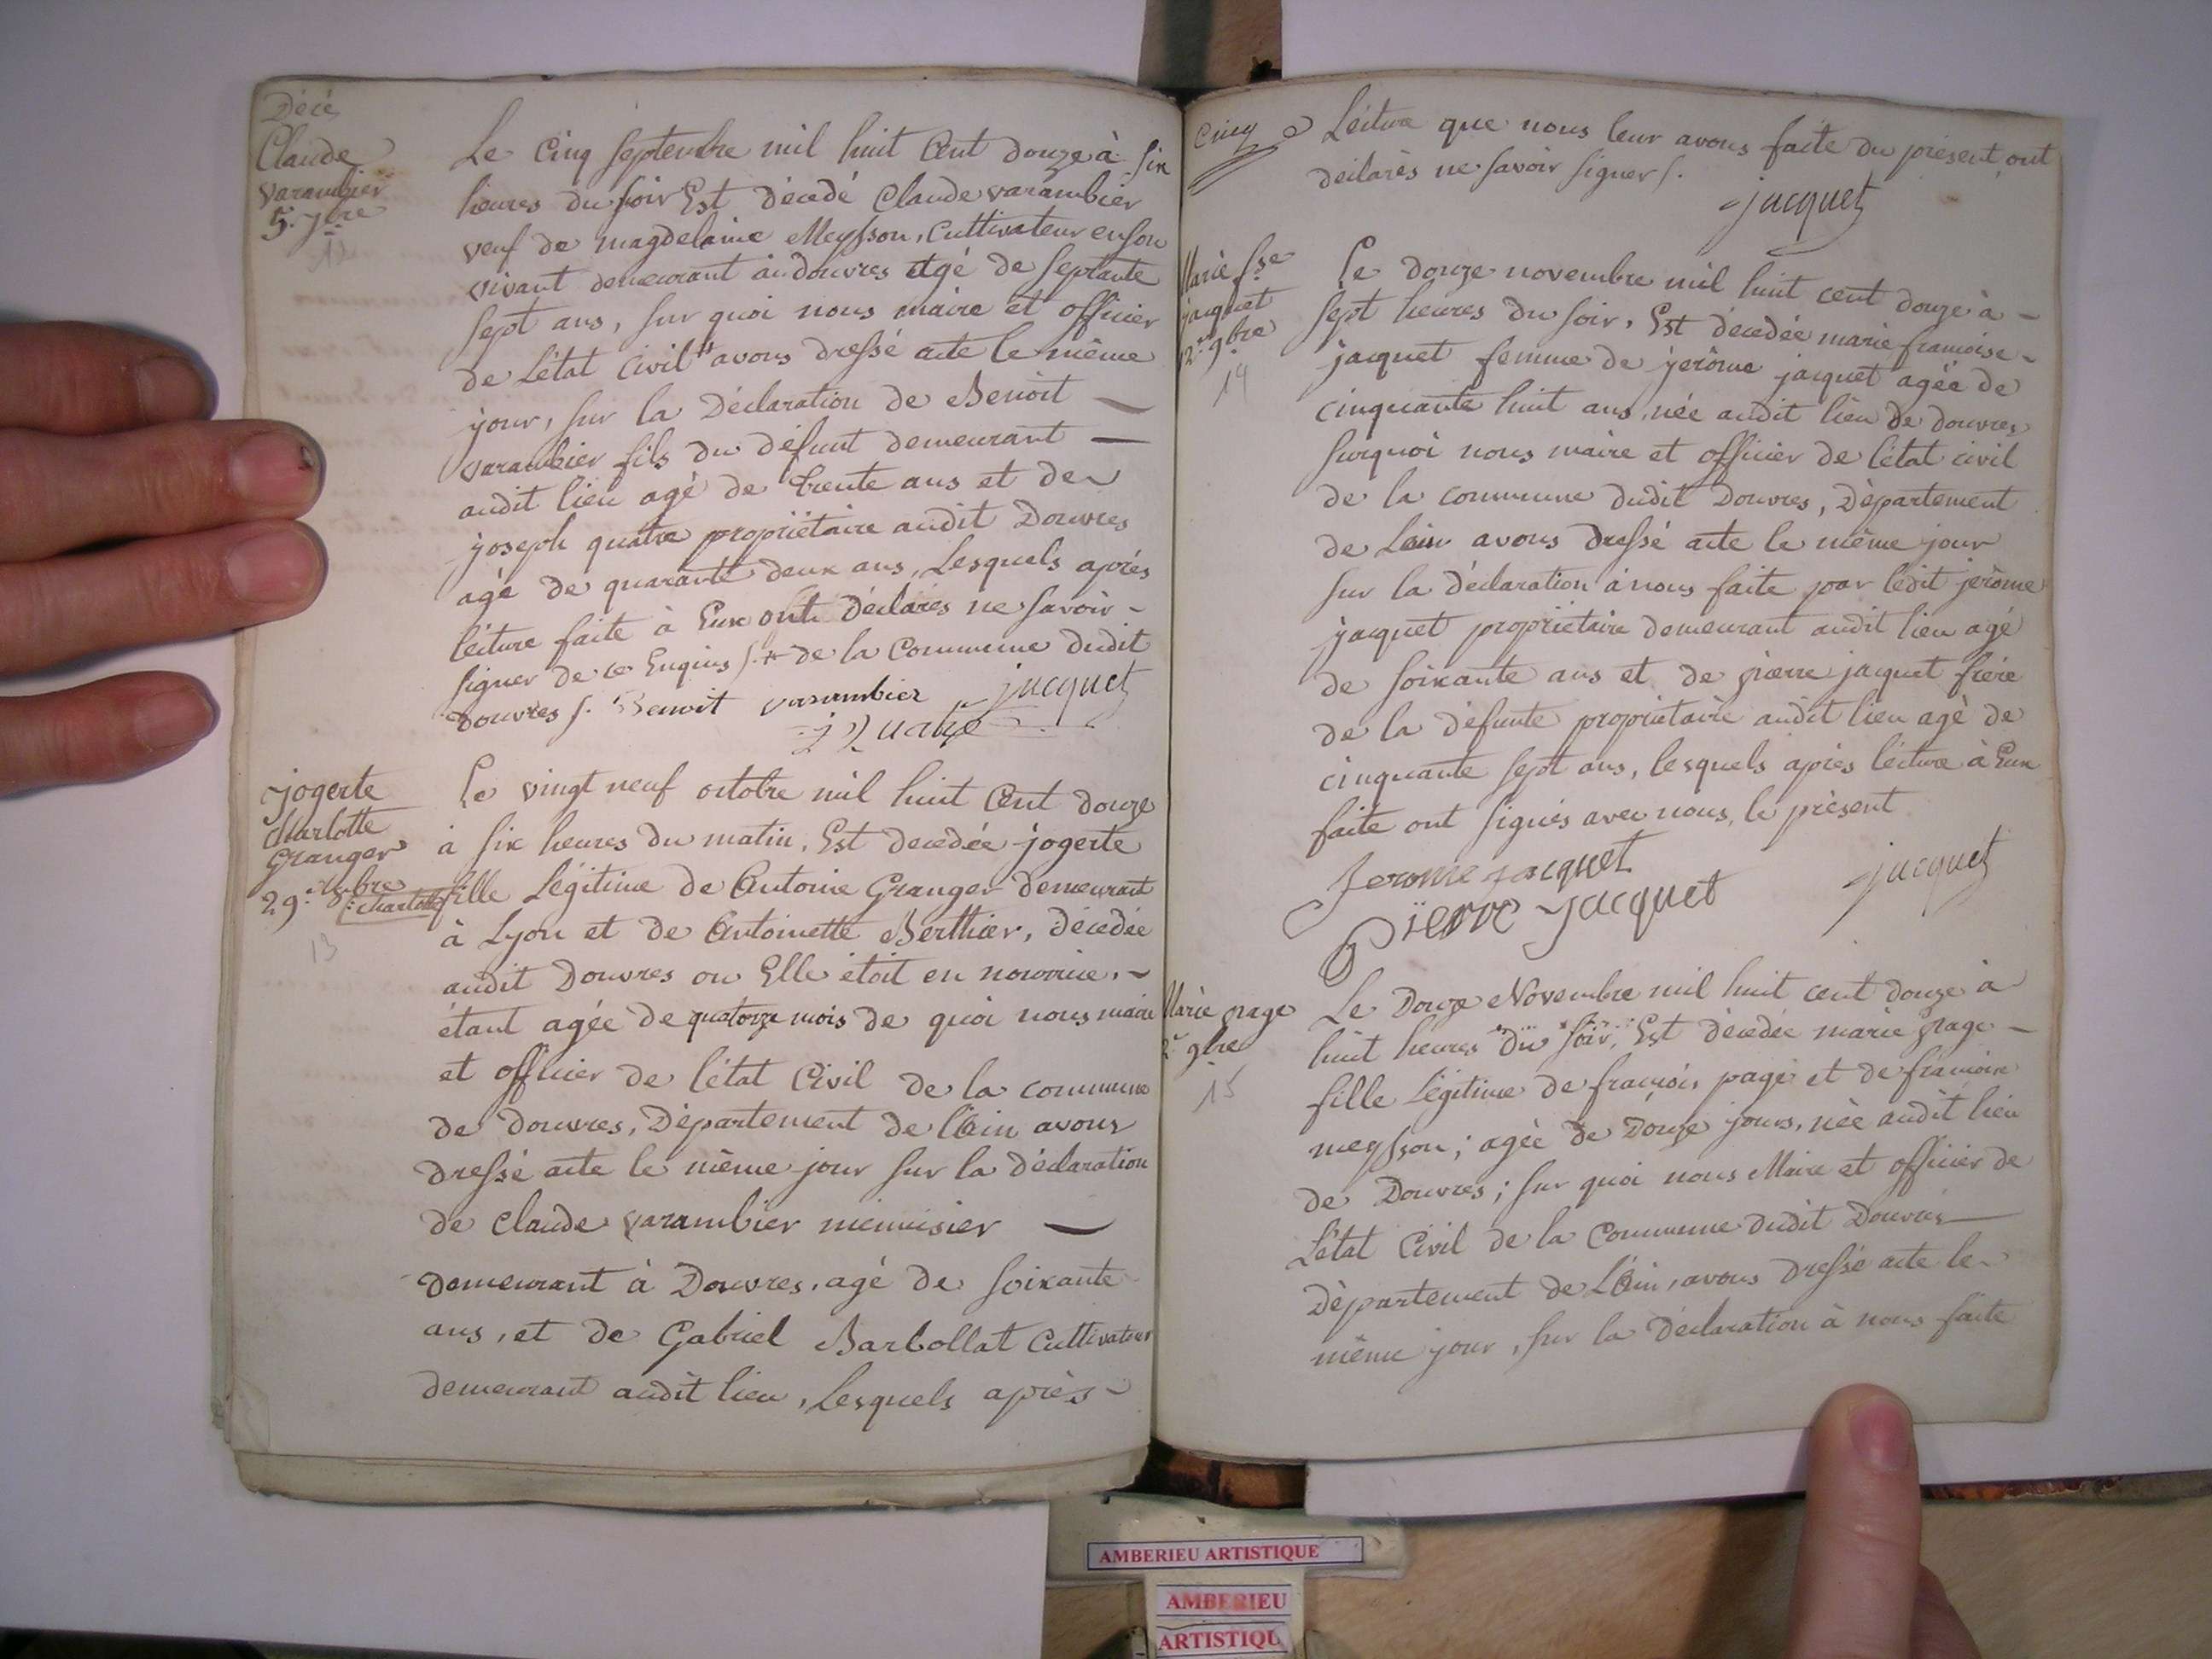 Décè
Claude
varambier
5. 7bre
12
Le Cinq septembre mil huit Cent douze à six
heures du soir Est décedé Claude varambier
veuf de magdelaine Meysson, Cultivateur en son
vivant demeurant à douvres agé de septante
sept ans, sur quoi nous maire et officier
de L'état Civil # avons dressé acte le même
jour, sur la Déclaration de Benoit —
varambier fils du défunt demeurant —
audit lieu agé de trente ans et de
joseph quatre propriétaire audit Douvres
agé de quarante deux ans, Lesquels après
lécture faite à Eux ont déclarés ne savoir
signer de ce Enquis /. # de la Commune dudit
douvres /. Benoit varambier jacquet
j Quatre
jogerte
charlotte
Granger
29. 8bre
13
Le vingt neuf octobre mil huit Cent douze
à six heures du matin, Est decedée jogerte
charlotte fille Légitime de Antoine Granger demeurant
à Lyon et de Antoinette Berthier, décedée
audit Douvres ou Elle étoit en nourrice,
étant agée de quatorze mois de quoi nous maire
et officier de l'état Civil de la commune
de Douvres, Département de l'Ain avons
dressé acte le même jour sur la déclaration
de Claude varambier menuisier —
demeurant à Douvres, agé de soixante
ans, et de Gabriel Barbollat Cultivateur
demeurant audit lieu, Lesquels après
cinq
Lécture que nous leur avons faite du présent, ont
déclarés ne savoir signer /.
jacquet
Marie fse
jacquet
12. 9bre
14
Le douze novembre mil huit cent douze à
sept heures du soir, Est décedée marie francoise
jacquet femme de jerôme jacquet agée de
cinquante huit ans, née audit lieu de douvres
surquoi nous maire et officier de l'état civil
de la commune dudit Douvres, Département
de L'ain avons dressé acte le même jour
sur la déclaration à nous faite par ledit jerôme
jacquet propriétaire demeurant audit lieu agé
de soixante ans et de pierre jacquet frère
de la défunte propriétaire audit lieu agé de
cinquante sept ans, lesquels après lécture à Eux
faite ont signés avec nous, le présent
Jerome jacquet
jacquet
Pierre Jacquet
Marie page
12 9bre
15
Le Douze Novembre mil huit cent douze à
huit heures du soir, Est décedée marie page
fille Légitime de françois page et de francoise
meysson; agée de Douze jours, née audit lieu
de Douvres; sur quoi nous Maire et officier de
L'état Civil de la Commune dudit Douvres
Département de L'Ain, avons dressé acte le
même jour, sur la Déclaration à nous faite
AMBERIEU ARTISTIQUE
AMBERIEU
ARTISTIQU